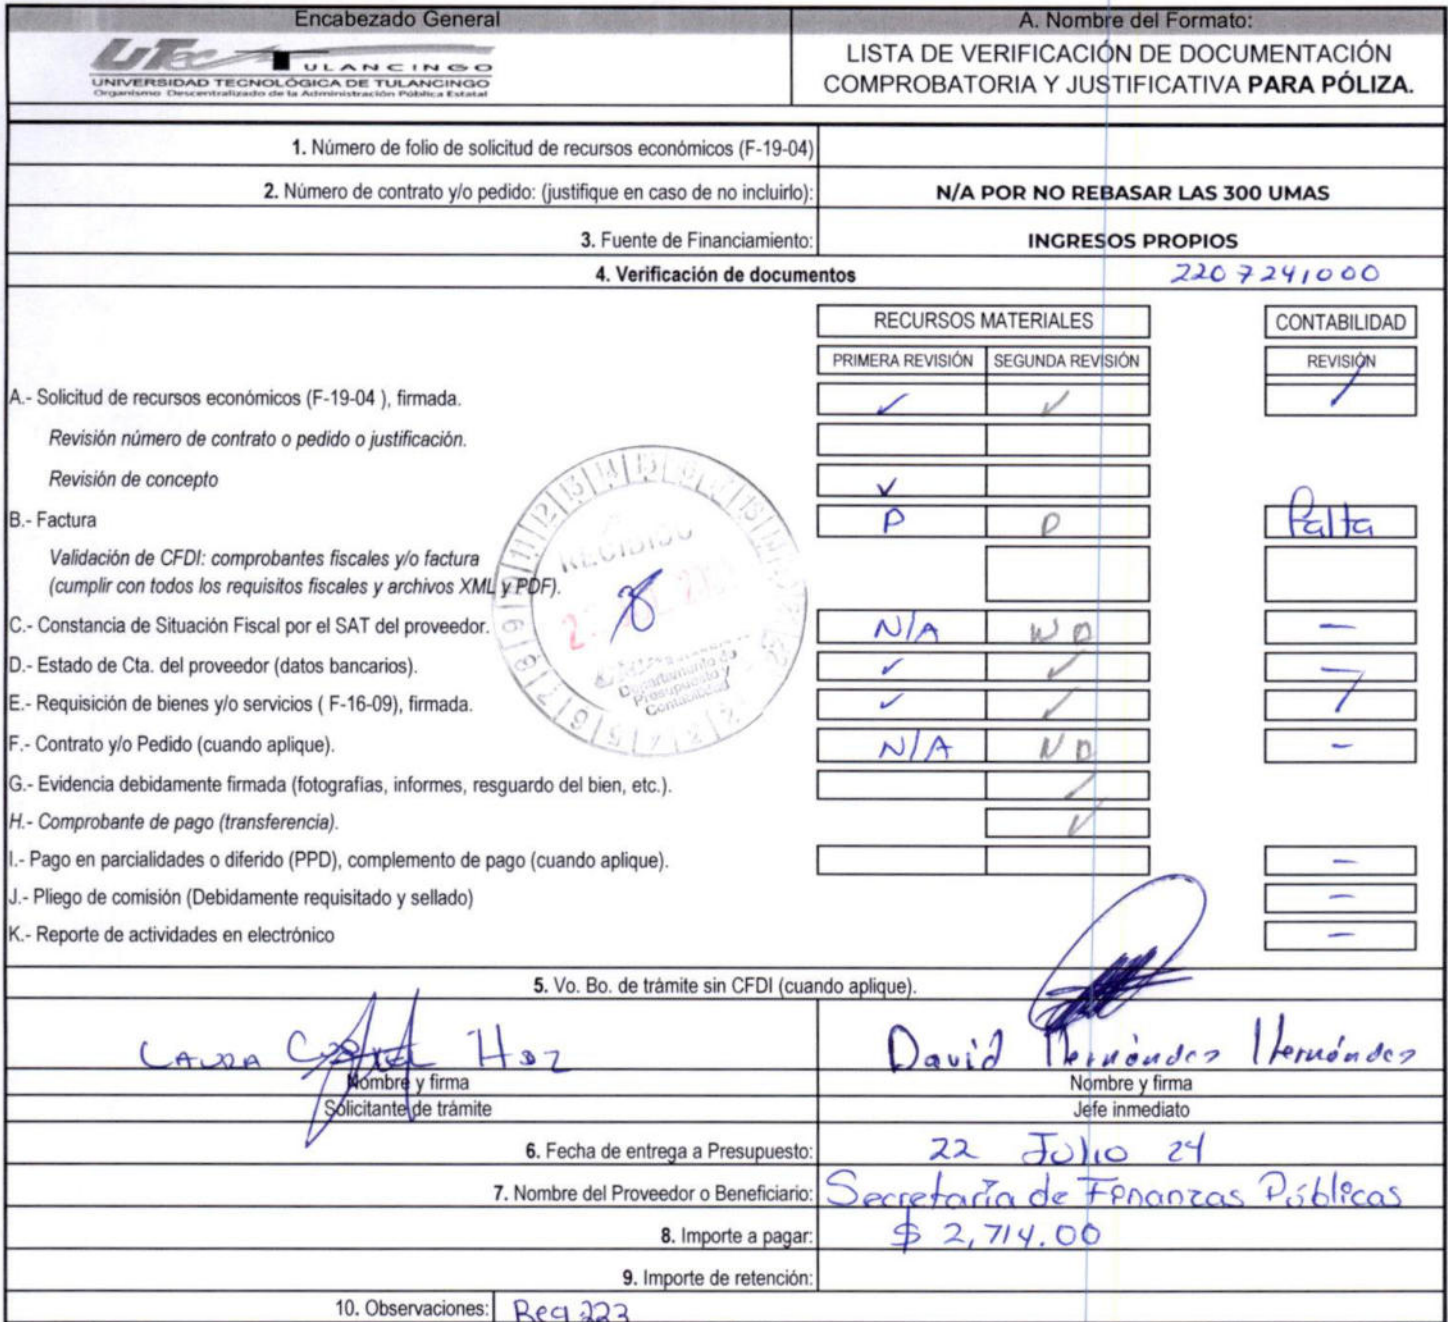 Encabezado General
A. Nombre del Formato:
UTec TULANCINGO
UNIVERSIDAD TECNOLÓGICA DE TULANCINGO
Organismo Descentralizado de la Administración Pública Estatal
LISTA DE VERIFICACIÓN DE DOCUMENTACIÓN
COMPROBATORIA Y JUSTIFICATIVA PARA PÓLIZA.
1. Número de folio de solicitud de recursos económicos (F-19-04)
2. Número de contrato y/o pedido: (justifique en caso de no incluirlo): N/A POR NO REBASAR LAS 300 UMAS
3. Fuente de Financiamiento: INGRESOS PROPIOS
4. Verificación de documentos 2207241000
RECURSOS MATERIALES CONTABILIDAD
PRIMERA REVISIÓN SEGUNDA REVISIÓN REVISIÓN
A.- Solicitud de recursos económicos (F-19-04 ), firmada. ✓ ✓ /
Revisión número de contrato o pedido o justificación.
Revisión de concepto ✓
B.- Factura P P Falta
Validación de CFDI: comprobantes fiscales y/o factura
(cumplir con todos los requisitos fiscales y archivos XML y PDF).
RECIBIDO
Departamento de
Presupuesto y
Contabilidad
C.- Constancia de Situación Fiscal por el SAT del proveedor. N/A —
D.- Estado de Cta. del proveedor (datos bancarios). ✓ ✓
E.- Requisición de bienes y/o servicios ( F-16-09), firmada. ✓ ✓
F.- Contrato y/o Pedido (cuando aplique). N/A —
G.- Evidencia debidamente firmada (fotografías, informes, resguardo del bien, etc.). ✓
H.- Comprobante de pago (transferencia). ✓
I.- Pago en parcialidades o diferido (PPD), complemento de pago (cuando aplique). —
J.- Pliego de comisión (Debidamente requisitado y sellado) —
K.- Reporte de actividades en electrónico —
5. Vo. Bo. de trámite sin CFDI (cuando aplique).
LAURA Hdz David Hernández Hernández
Nombre y firma Nombre y firma
Solicitante de trámite Jefe inmediato
6. Fecha de entrega a Presupuesto: 22 Julio 24
7. Nombre del Proveedor o Beneficiario: Secretaría de Finanzas Públicas
8. Importe a pagar: $ 2,714.00
9. Importe de retención:
10. Observaciones: Req 223